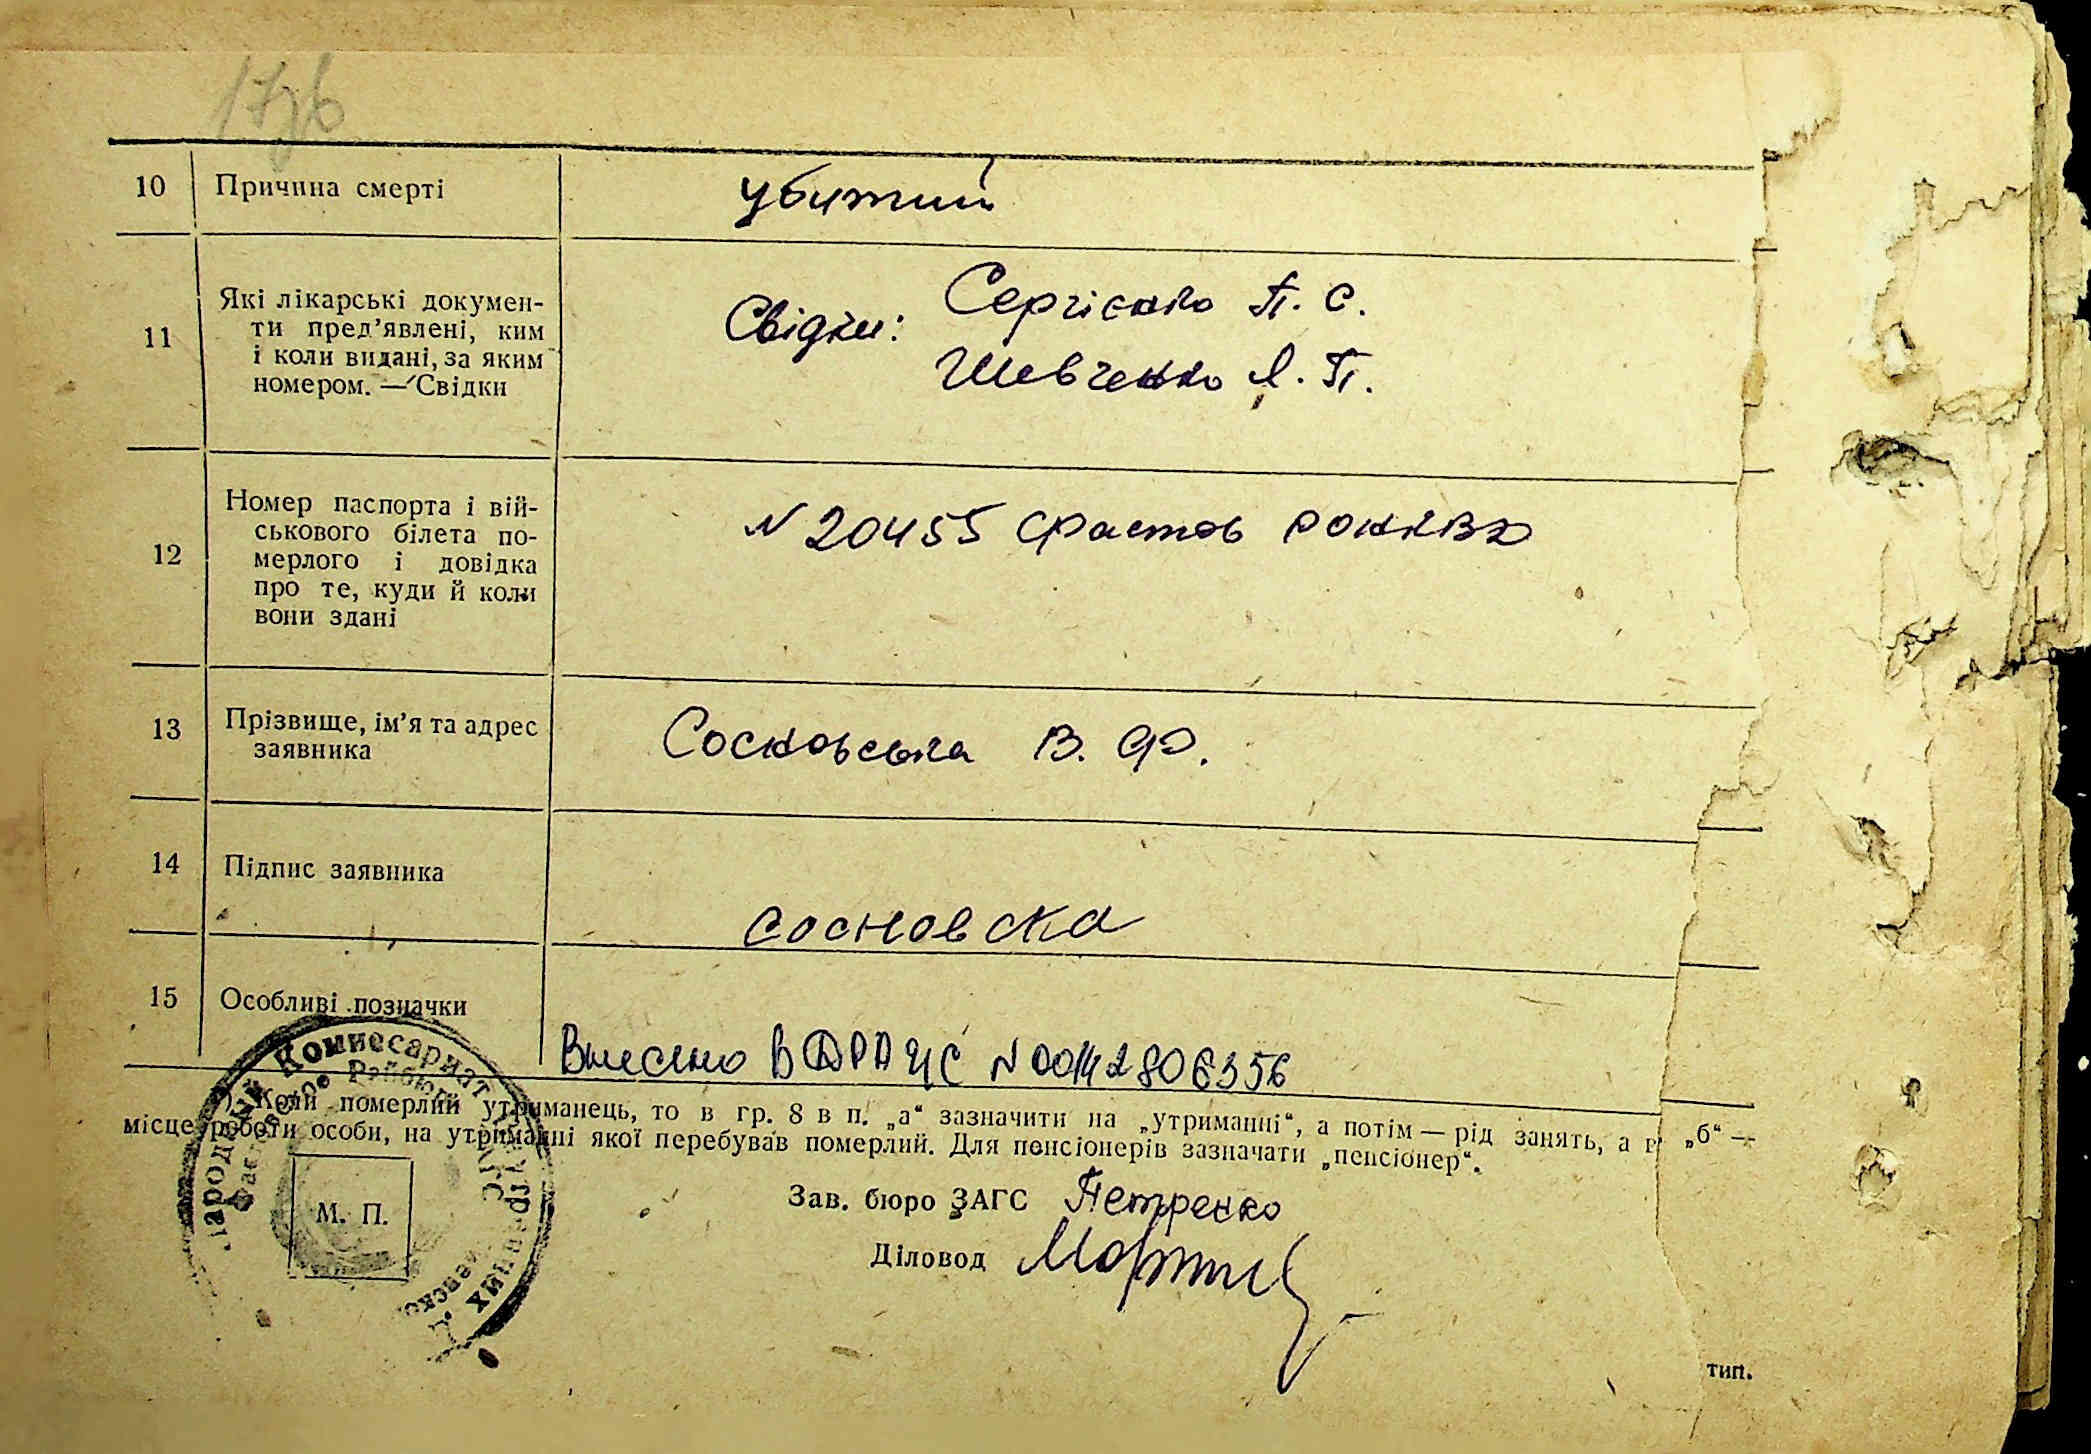 17зв
10 Причина смерті убитий
11 Які лікарські докумен-
ти пред’явлені, ким
і коли видані, за яким
номером. — Свідки
Свідки: Сергієнко П. С.
Шевченко Л. П.
12 Номер паспорта і вій-
ськового білета по-
мерлого і довідка
про те, куди й коли
вони здані
N 20455 Фастов РОНКВД
13 Прізвище, ім’я та адрес
заявника
Сосновська В. Ф.
14 Підпис заявника
Сосновска
15 Особливі позначки
Внесено в ДРАЦС N 00142806356
) Коли померлий утриманець, то в гр. 8 в п. „а“ зазначити на „утриманні“, а потім — рід занять, а в „б“ —
місце роботи особи, на утриманні якої перебував померлий. Для пенсіонерів зазначати „пенсіонер“.
Народный Комиссариат Внутр
Райбюро ЗАГС
М. П.
Зав. бюро ЗАГС Петренко
Діловод
тип.